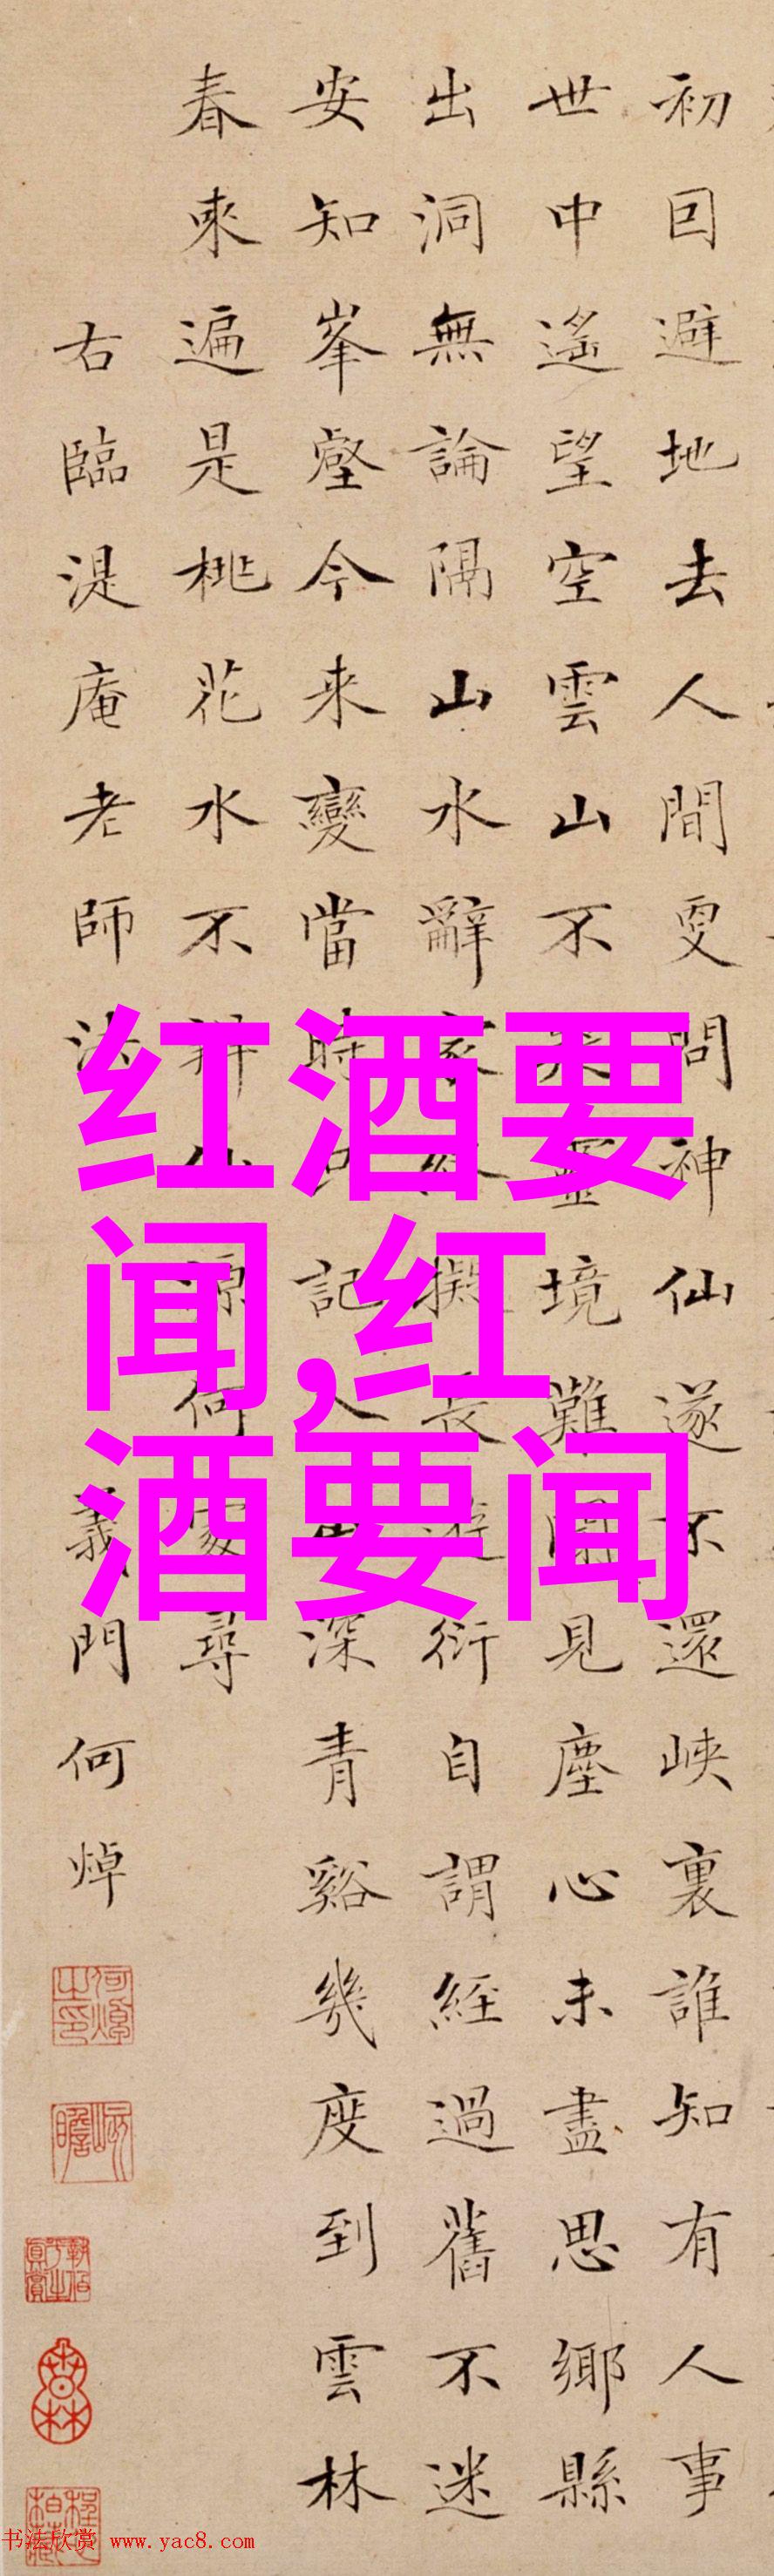 初囙避地去人間更問神仙遂不還峽裏誰知有人事
世中遙望空雲山不靈境難聞見塵心未盡思鄉縣
出洞無論隔山水辭家終擬長遊衍自謂經過舊不迷
安知峯壑今来變當時只記入山深青谿幾度到雲林
春來遍是桃花水不辨仙源何處尋
右臨湜庵老師法 義門何焯
红酒要
闻,红
酒要闻
何焯之印
书法欣赏 www.yac8.com